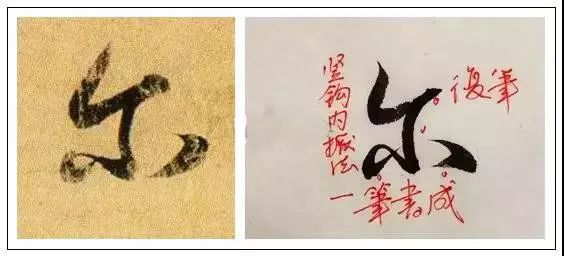 尔
尔
竖鈎内擫法
復筆
一筆書成